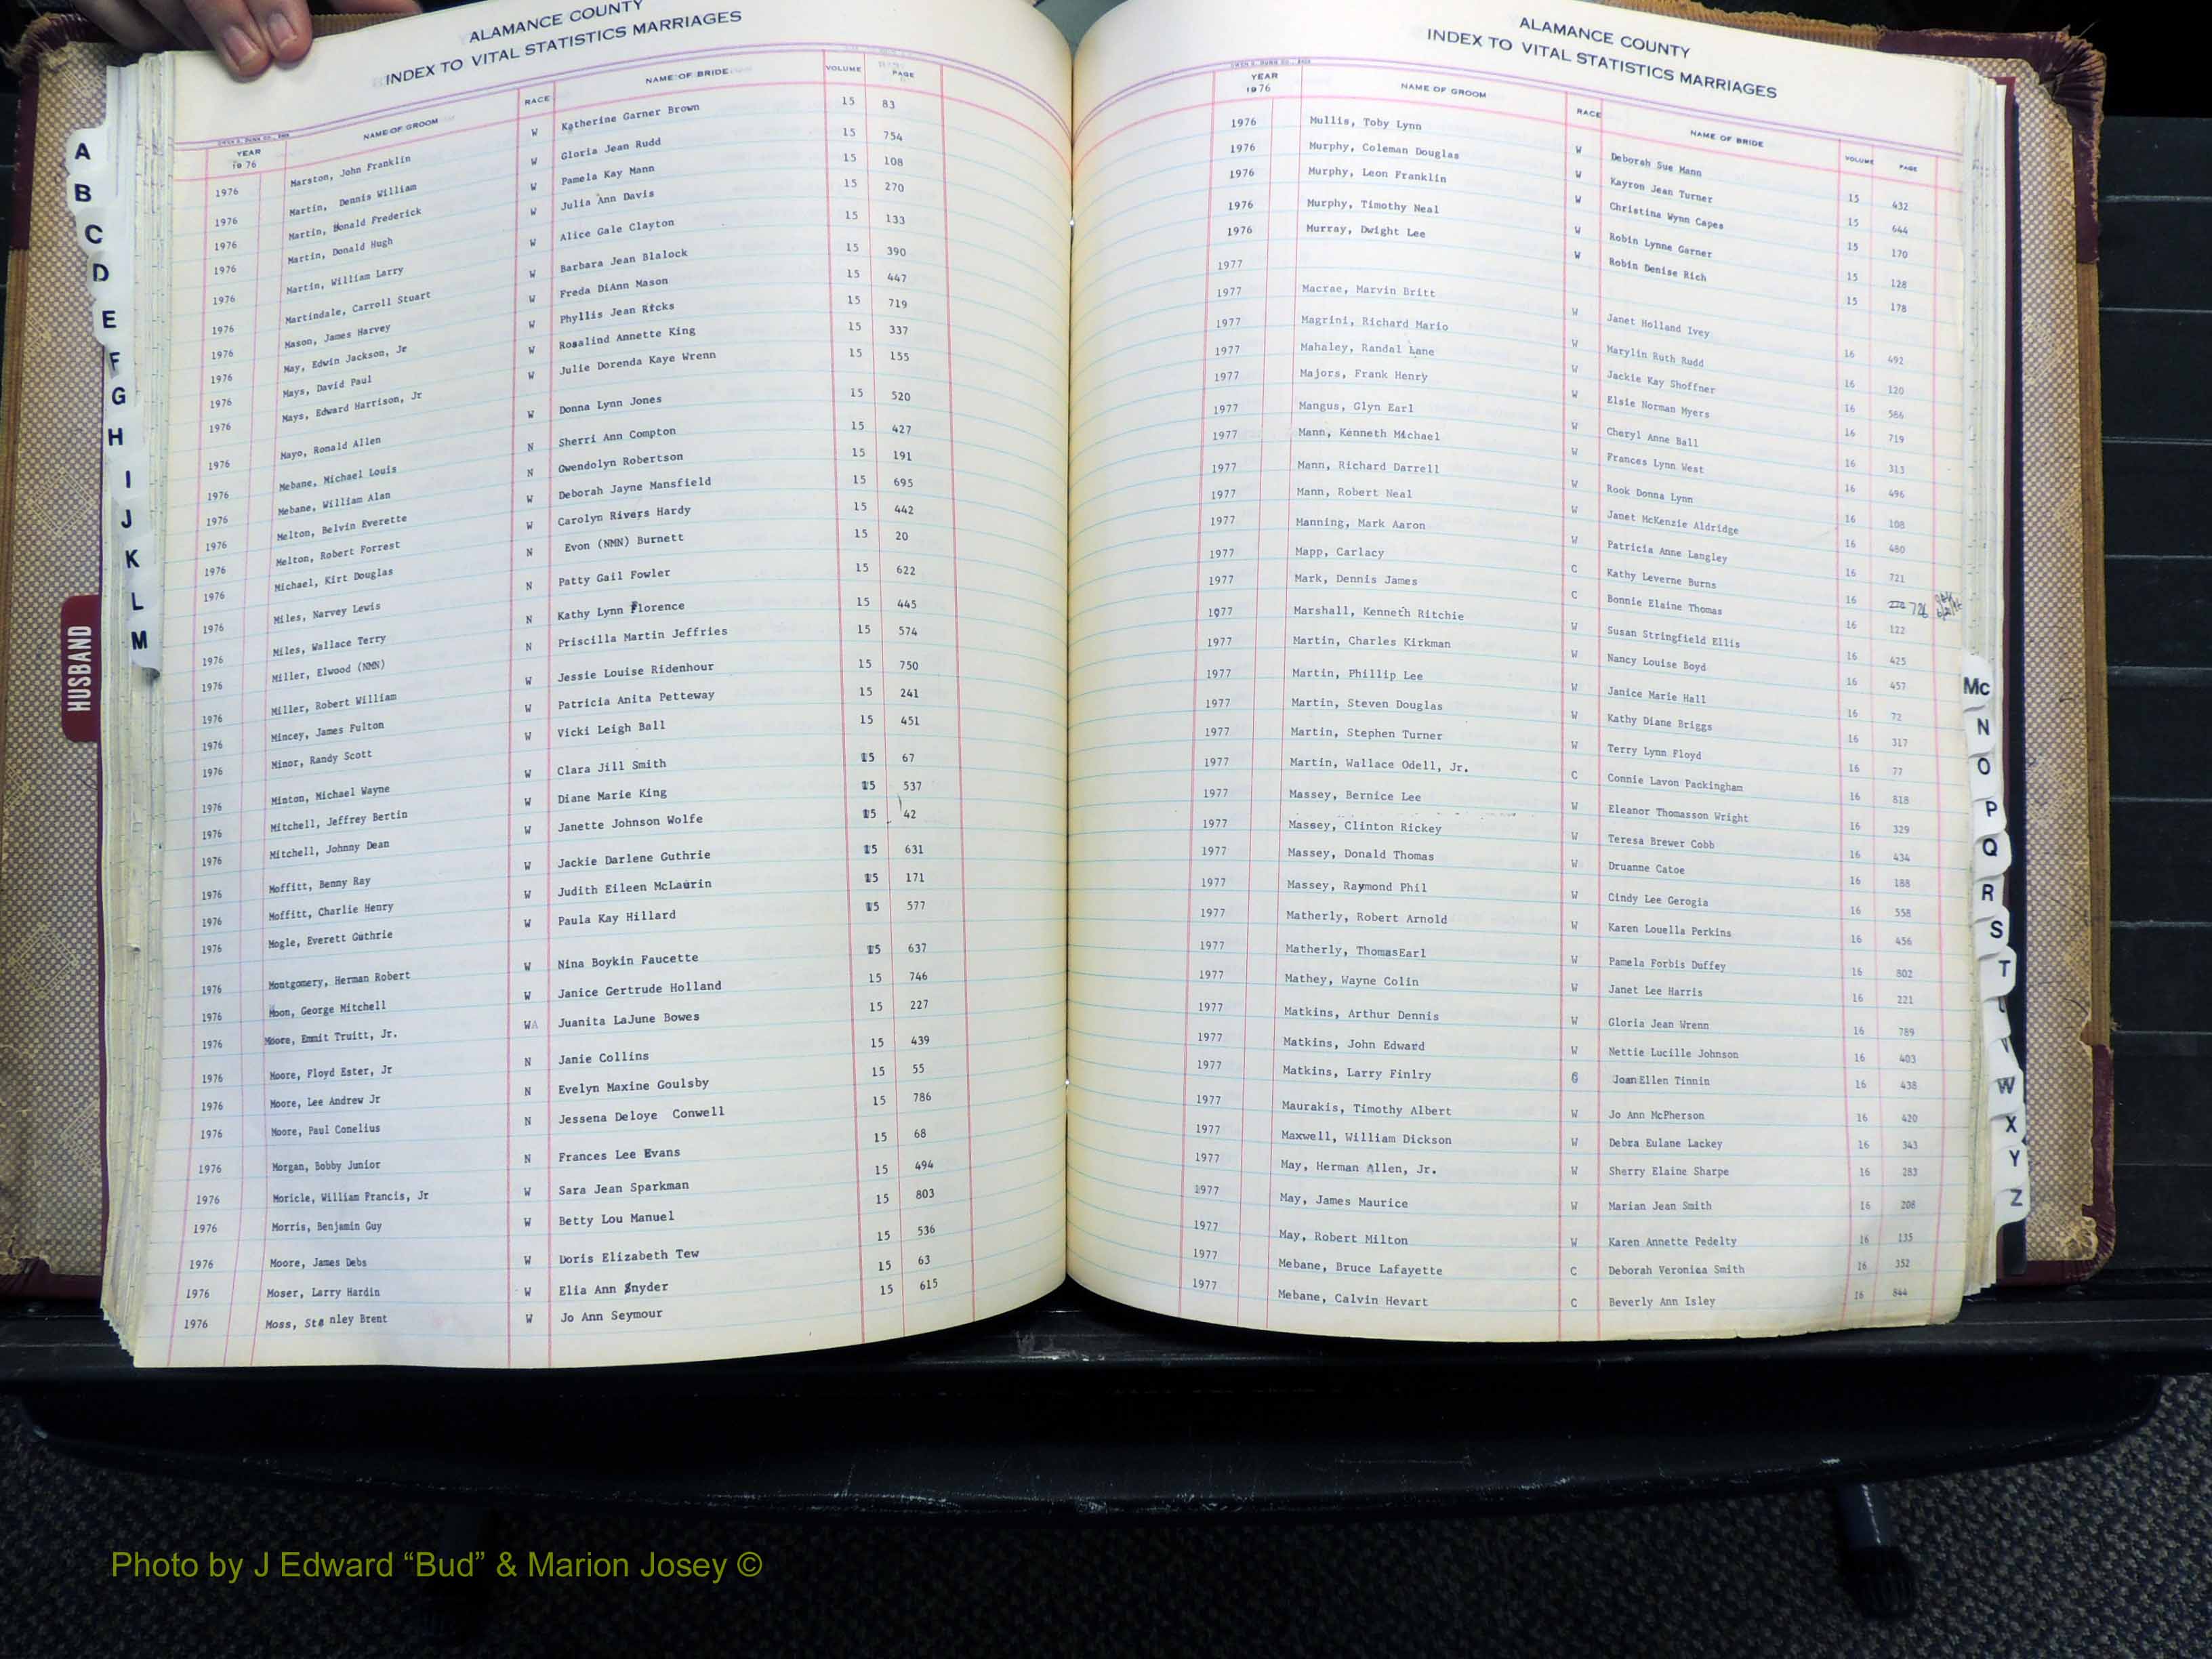 ALAMANCE COUNTY
INDEX TO VITAL STATISTICS MARRIAGES
YEAR NAME OF GROOM RACE NAME OF BRIDE VOLUME PAGE
1976
1976 Marston, John Franklin W Katherine Garner Brown 15 83
1976 Martin, Dennis William W Gloria Jean Rudd 15 754
1976 Martin, Donald Frederick W Pamela Kay Mann 15 108
1976 Martin, Donald Hugh W Julia Ann Davis 15 270
1976 Martin, William Larry W Alice Gale Clayton 15 133
1976 Martindale, Carroll Stuart W Barbara Jean Blalock 15 390
1976 Mason, James Harvey W Freda DiAnn Mason 15 447
1976 May, Edwin Jackson, Jr W Phyllis Jean Ricks 15 719
1976 Mays, David Paul W Rosalind Annette King 15 337
1976 Mays, Edward Harrison, Jr W Julie Dorenda Kaye Wrenn 15 155
1976 Mayo, Ronald Allen W Donna Lynn Jones 15 520
1976 Mebane, Michael Louis N Sherri Ann Compton 15 427
1976 Mebane, William Alan N Gwendolyn Robertson 15 191
1976 Melton, Belvin Everette W Deborah Jayne Mansfield 15 695
1976 Melton, Robert Forrest W Carolyn Rivers Hardy 15 442
1976 Michael, Kirt Douglas N Evon (NMN) Burnett 15 20
1976 Miles, Narvey Lewis N Patty Gail Fowler 15 622
1976 Miles, Wallace Terry N Kathy Lynn Florence 15 445
1976 Miller, Elwood (NMN) N Priscilla Martin Jeffries 15 574
1976 Miller, Robert William W Jessie Louise Ridenhour 15 750
1976 Mincey, James Fulton W Patricia Anita Petteway 15 241
1976 Minor, Randy Scott W Vicki Leigh Ball 15 451
1976 Minton, Michael Wayne W Clara Jill Smith 15 67
1976 Mitchell, Jeffrey Bertin W Diane Marie King 15 537
1976 Mitchell, Johnny Dean W Janette Johnson Wolfe 15 42
1976 Moffitt, Benny Ray W Jackie Darlene Guthrie 15 631
1976 Moffitt, Charlie Henry W Judith Eileen McLaurin 15 171
1976 Mogle, Everett Guthrie W Paula Kay Hillard 15 577
1976 Montgomery, Herman Robert W Nina Boykin Faucette 15 637
1976 Moon, George Mitchell W Janice Gertrude Holland 15 746
1976 Moore, Emmit Truitt, Jr. W Juanita LaJune Bowes 15 227
1976 Moore, Floyd Ester, Jr N Janie Collins 15 439
1976 Moore, Lee Andrew Jr N Evelyn Maxine Goulsby 15 55
1976 Moore, Paul Conelius N Jessena Deloye Conwell 15 786
1976 Morgan, Bobby Junior N Frances Lee Evans 15 68
1976 Moricle, William Francis, Jr W Sara Jean Sparkman 15 494
1976 Morris, Benjamin Guy W Betty Lou Manuel 15 803
1976 Moore, James Debs W Doris Elizabeth Tew 15 536
1976 Moser, Larry Hardin W Elia Ann Snyder 15 63
1976 Moss, Stanley Brent W Jo Ann Seymour 15 615
ALAMANCE COUNTY
INDEX TO VITAL STATISTICS MARRIAGES
YEAR NAME OF GROOM RACE NAME OF BRIDE VOLUME PAGE
1976
1976 Mullis, Toby Lynn W Deborah Sue Mann 15 432
1976 Murphy, Coleman Douglas W Kayron Jean Turner 15 644
1976 Murphy, Leon Franklin W Christina Wynn Capes 15 170
1976 Murphy, Timothy Neal W Robin Lynne Garner 15 128
1976 Murray, Dwight Lee W Robin Denise Rich 15 178
1977
1977 Macrae, Marvin Britt W Janet Holland Ivey 16 492
1977 Magrini, Richard Mario W Marylin Ruth Rudd 16 120
1977 Mahaley, Randal Lane W Jackie Kay Shoffner 16 566
1977 Majors, Frank Henry W Elsie Norman Myers 16 719
1977 Mangus, Glyn Earl W Cheryl Anne Ball 16 313
1977 Mann, Kenneth Michael W Frances Lynn West 16 496
1977 Mann, Richard Darrell W Rook Donna Lynn 16 108
1977 Mann, Robert Neal W Janet McKenzie Aldridge 16 480
1977 Manning, Mark Aaron W Patricia Anne Langley 16 721
1977 Mapp, Carlacy C Kathy Leverne Burns 16 726
1977 Mark, Dennis James C Bonnie Elaine Thomas 16 122
1977 Marshall, Kenneth Ritchie W Susan Stringfield Ellis 16 425
1977 Martin, Charles Kirkman W Nancy Louise Boyd 16 457
1977 Martin, Phillip Lee W Janice Marie Hall 16 72
1977 Martin, Steven Douglas W Kathy Diane Briggs 16 317
1977 Martin, Stephen Turner W Terry Lynn Floyd 16 77
1977 Martin, Wallace Odell, Jr. C Connie Lavon Packingham 16 818
1977 Massey, Bernice Lee W Eleanor Thomasson Wright 16 329
1977 Massey, Clinton Rickey W Teresa Brewer Cobb 16 434
1977 Massey, Donald Thomas W Druanne Catoe 16 188
1977 Massey, Raymond Phil W Cindy Lee Gerogia 16 558
1977 Matherly, Robert Arnold W Karen Louella Perkins 16 456
1977 Matherly, ThomasEarl W Pamela Forbis Duffey 16 802
1977 Mathey, Wayne Colin W Janet Lee Harris 16 221
1977 Matkins, Arthur Dennis W Gloria Jean Wrenn 16 789
1977 Matkins, John Edward W Nettie Lucille Johnson 16 403
1977 Matkins, Larry Finlry JoanEllen Tinnin 16 438
1977 Maurakis, Timothy Albert W Jo Ann McPherson 16 420
1977 Maxwell, William Dickson W Debra Eulane Lackey 16 343
1977 May, Herman Allen, Jr. W Sherry Elaine Sharpe 16 283
1977 May, James Maurice W Marian Jean Smith 16 208
1977 May, Robert Milton W Karen Annette Pedelty 16 135
1977 Mebane, Bruce Lafayette C Deborah Veronica Smith 16 352
1977 Mebane, Calvin Hevart C Beverly Ann Isley 16 844
A
B
C
D
E
F
G
H
I
J
K
L
M
HUSBAND
Mc
N
O
P
Q
R
S
T
V
W
X
Y
Z
Photo by J Edward “Bud” & Marion Josey ©